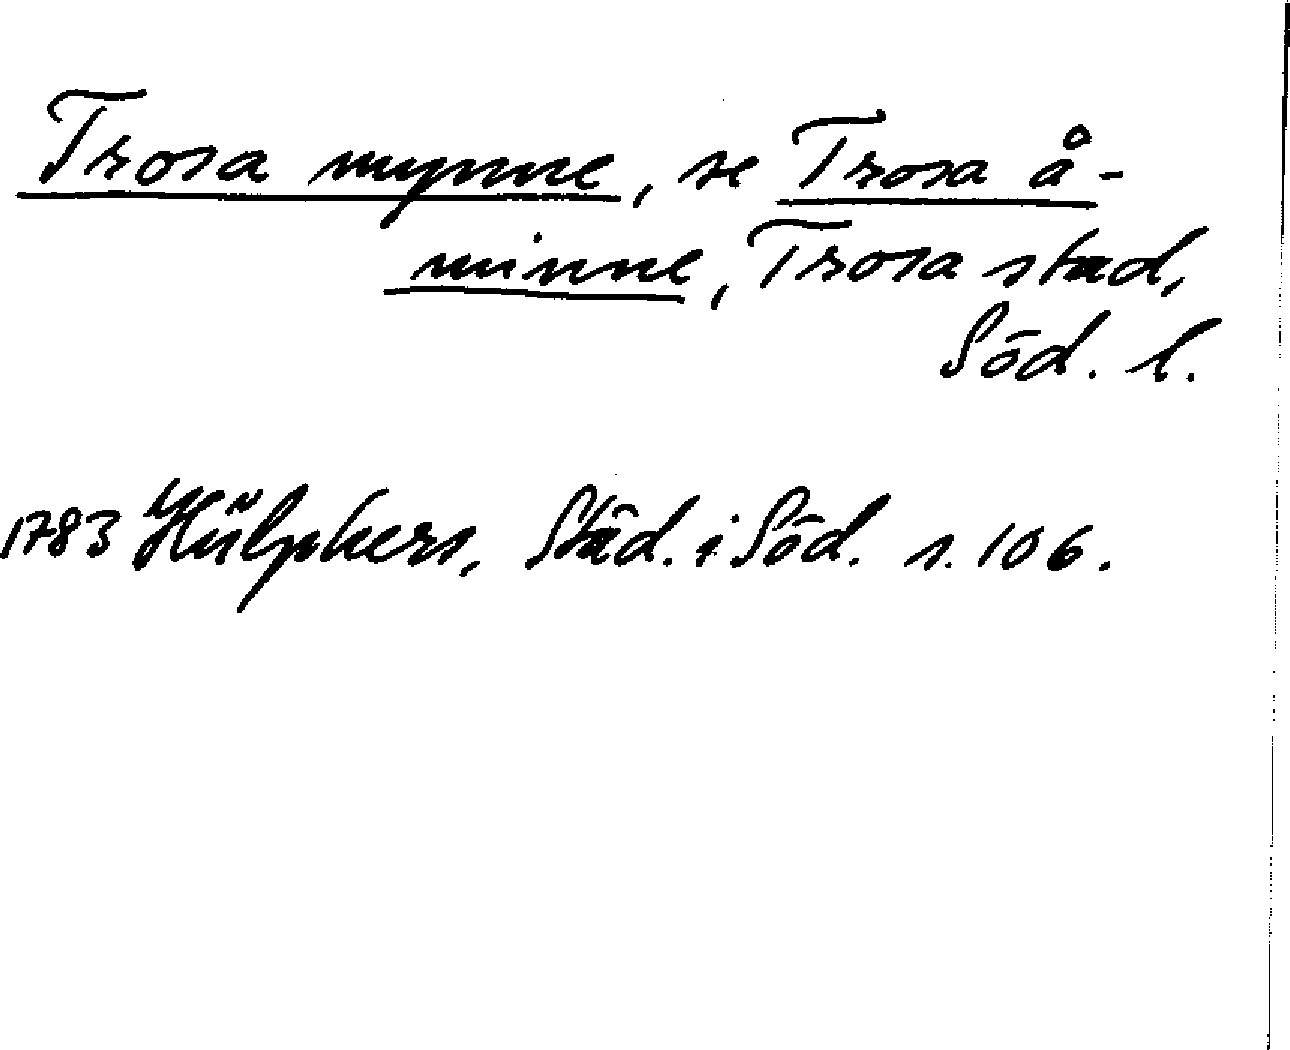 Trosa mynne, se Trosa å-
minne, Trosa stad,
Söd. l.
1783 Hülphers, Städ. i Söd. s. 106.